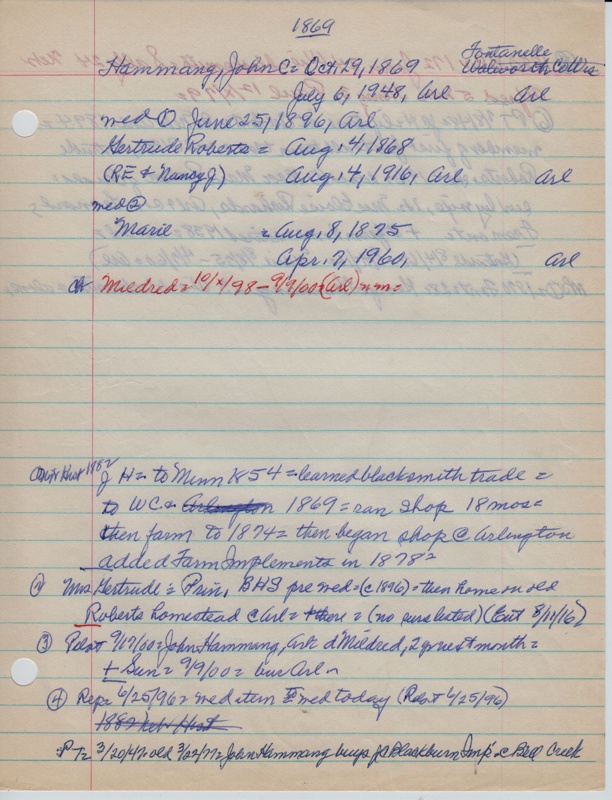 1869
Fontanelle
Hammang, John C = Oct, 29, 1869 Walworth Co Wis
July 6, 1948, Arl Arl
med ① June 25, 1896, Arl
Gertrude Roberts = Aug, 4, 1868
(RE & Nancy J) Aug, 4, 1916, Arl Arl
med ②
Marie = Aug, 8, 1875
Apr. 7, 1960, Arl
ch Mildred = 10/x/98 - 9/9/00 = (Arl) = nm =
Hist 1882 J H = to Minn 1854 = learned blacksmith trade =
to WC & Arlington 1869 = ran shop 18 mos =
then farm to 1874 = then began shop @ Arlington
added Farm Implements in 1878 =
② Mrs Gertrude = Prin, BHS pre med = (c1896) = then home on old
Roberts homestead @ Arl = there = (no survs listed) (Ent 8/11/16)
③ Pilot 9/17/00 = John Hammang, Arl = d Mildred, 2 yrs est month =
+ Sun = 9/9/00 = bur Arl =
④ Rep = 6/25/96 = med item med today (Pilot 6/25/96)
1882 Neb Hist
P-T = 3/20/47 = old 3/22/77 = John Hammang buys Blackburn Imp @ Bell Creek